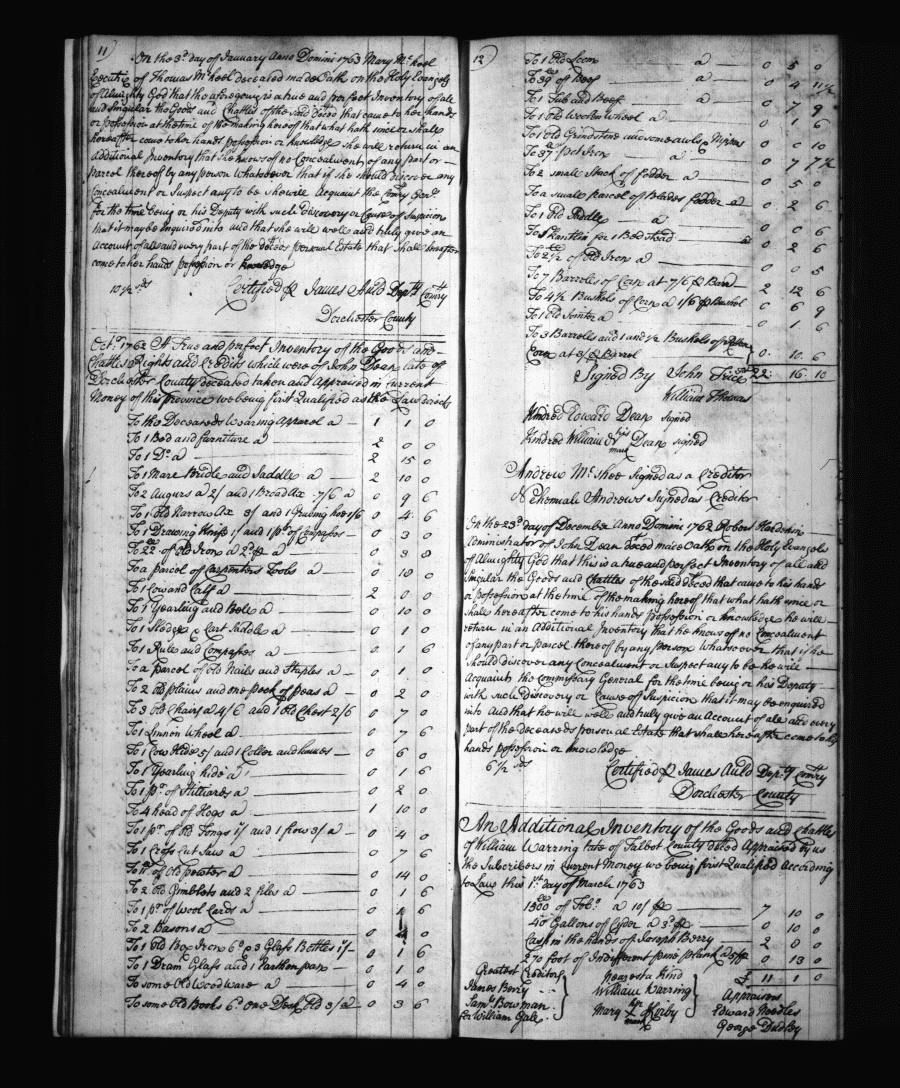 11
On the 3d day of January Anno Domini 1763 Mary McKeel
Executrix of Thomas McKeel deceased made Oath on the Holy Evangels
of Almighty God that the aforegoing is a true and perfect Inventory of all
and Singular the Goods and Chattles of the said Deced that came to her hands
or possession at the time of the making hereof that what hath since or shall
hereafter come to her hands possession or knowledge she will return in an
Additional Inventory that she knows of no Concealment of any part or
parcel thereof by any person Whatsoever that if she should discover any
Concealment or Suspect any to be she will Acquaint the Comry Genl
for the time being or his Deputy with such Discovery or Cause of Suspicion
that it may be Enquired into and that she will well and truly give an
Account of all and every part of the deceds personal Estate that shall hereafter
come to her hands possession or knowledge
10 1/2 sds Certified p James Auld Depty Comry
Dorchester County
Octr 1762 A True and perfect Inventory of the Goods and
Chattles Rights and Credits which were of John Dean late of
Dorchester County deceased taken and Appraised in Current
Money of this Province we being first Qualified as the Law directs
To the Deceaseds Wearing Apparel a 1 1 0
To 1 Bed and furniture a 2 0 0
To 1 Do a 2 15 0
To 1 Mare Bridle and Saddle a 2 10 0
To 2 Augurs a 2/ and 1 Broad Ax 7/6 a 0 9 6
To 1 old Narrow Ax 3/ and 1 Gruving hoe 1/6 0 4 6
To 1 Drawing Knife 1/ and 1 pr of Compasses 0 3 0
To 22 of Old Iron a 2d p a 0 3 8
To a parcel of Carpenters Tools a 0 10 0
To 1 Cow and Calf a 2 0 0
To 1 Yearling and Bell a 0 10 0
To 1 Sledge & Cart Saddle a 0 1 0
To 1 Rule and Compasses a 0 1 6
To a parcel of Old Nails and Staples a 0 1 0
To 2 old plains and one peck of peas a 0 2 0
To 3 Old Chairs a 4/6 and 1 Old Chest 2/6 0 7 0
To 1 Linnen Wheel a 0 7 6
To 1 Cow Hide 5/ and 1 Coller and hames 0 6 0
To 1 Yearling hide a 0 1 6
To 1 pr of Stilliards a 0 2 0
To 4 head of Hogs a 1 10 0
To 1 pr of Old Tongs 1/ and 1 plow 3/ a 0 4 0
To 1 Cross Cut Saw a 0 7 6
To of Old pewter a 0 14 0
To 2 Old Gimblets and 2 files a 0 1 6
To 1 pr of Wool Cards a 0 1 6
To 2 Basons a 0 4 0
To 1 Old Box Iron 6d & 3 Glass Bottles 1/ 0 1 6
To 1 Dram Glass and 1 Earthen pan 0 1 0
To some Old Wood ware a 0 4 0
To some Old Books 6d One Desk Old 3/ a 0 3 6
12
To 1 Old Loom a 0 5 0
To 39 of Beef a 0 4 11 1/2
To 1 Tub and Beef a 0 7 9
To 1 Old Woollen Wheel a 0 1 6
To 1 old Grindstone and some auls & Nippers 0 0 10
To 37 of pot Iron a 0 7 7 1/2
To 2 small Stack of fodder a 0 5 0
To a small parcel of Blades fodder a 0 2 6
To 1 Old Riddle a 0 0 6
To Skantlin for 1 Bed stead a 0 2 6
To 2 1/2 of Old Iron a 0 0 5
To 7 Barrells of Corn at 7/6 p Barrl 2 12 6
To 4 1/2 Bushels of Corn a 1/6 p Bushel 0 6 9
To 1 Old Jointer a 0 1 6
To 3 Barrells and 1 and 1/2 Bushels of Rotten
Corn at 3/ p Barrel 0 10 6
Signed By John Trice 22 16 10
William Thomas
Kindred Edward Dean signed
Kindred William his mark Dean signed
Andrew McShee Signed as a Creditor
Nehemiah Andrews Signed as Creditor
On the 23d day of December Anno Domini 1762 Robert Hardikin
Administrator of John Dean deced made Oath on the Holy Evangels
of Almighty God that this is a true and perfect Inventory of all and
Singular the Goods and Chattles of the said deced that came to his hands
or possession at the time of the making hereof that what hath since or
shall hereafter come to his hands possession or knowledge he will
return in an Additional Inventory that he knows of no Concealment
of any part or parcel thereof by any person Whatsoever that if he
should discover any Concealment or Suspect any to be he will
Acquaint the Commissary General for the time being or his Deputy
with such Discovery or Cause of Suspicion that it may be enquired
into And that he will well and truly give an Account of all and every
part of the deceaseds personal Estate that shall hereafter come to his
hands possession or knowledge
6 1/2 sds Certified p James Auld Depty Comry
Dorchester County
An Additional Inventory of the Goods and Chattles
of William Warring late of Talbot County deced Appraised by us
the Subscribers in Current Money we being first Qualified According
to Law this 1st day of March 1763
1500 of Tobo a 10/ p 7 10 0
40 Gallons of Cyder a 3d p 0 10 0
Cash in the hands of Joseph Berry 2 8 0
270 foot of Indifferent pine plank a 5/ p 0 13 0
£ 11 1 0
Greatest Creditors
James Berry
Saml Bowman
for William Gale
Nearest a Kind
William Warring
Mary her mark Kirby
Appraisers
Edward Needles
George Dudley